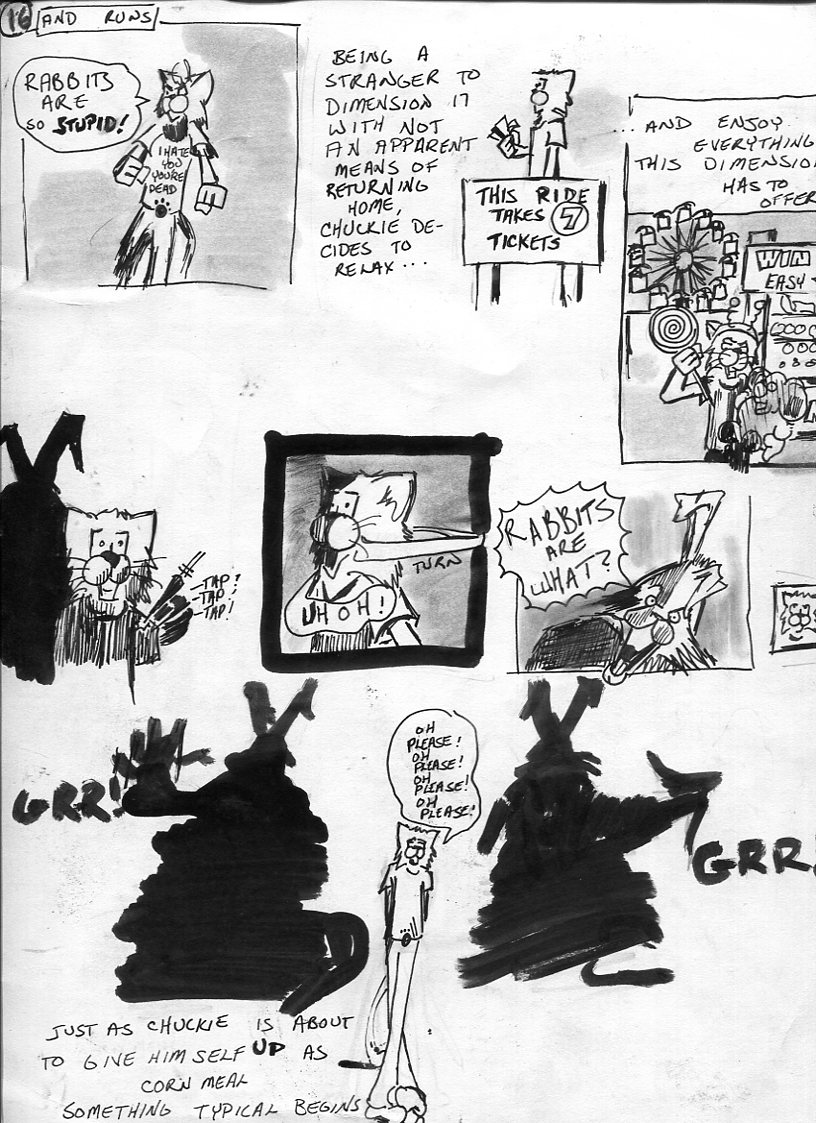 16
AND RUNS
RABBITS
ARE
SO STUPID!
I HATE
YOU
YOU'RE
DEAD
BEING A
STRANGER TO
DIMENSION 17
WITH NOT
AN APPARENT
MEANS OF
RETURNING
HOME,
CHUCKIE DE-
CIDES TO
RELAX...
THIS RIDE
TAKES 7
TICKETS
...AND ENJOY
EVERYTHING
THIS DIMENSION
HAS TO
OFFER
WIN
EASY
TAP!
TAP!
TAP!
TURN
UH OH!
RABBITS
ARE
WHAT?
GRR!
OH
PLEASE!
OH
PLEASE!
OH
PLEASE!
OH
PLEASE!
GRR!
JUST AS CHUCKIE IS ABOUT
TO GIVE HIMSELF UP AS
CORN MEAL
SOMETHING TYPICAL BEGINS